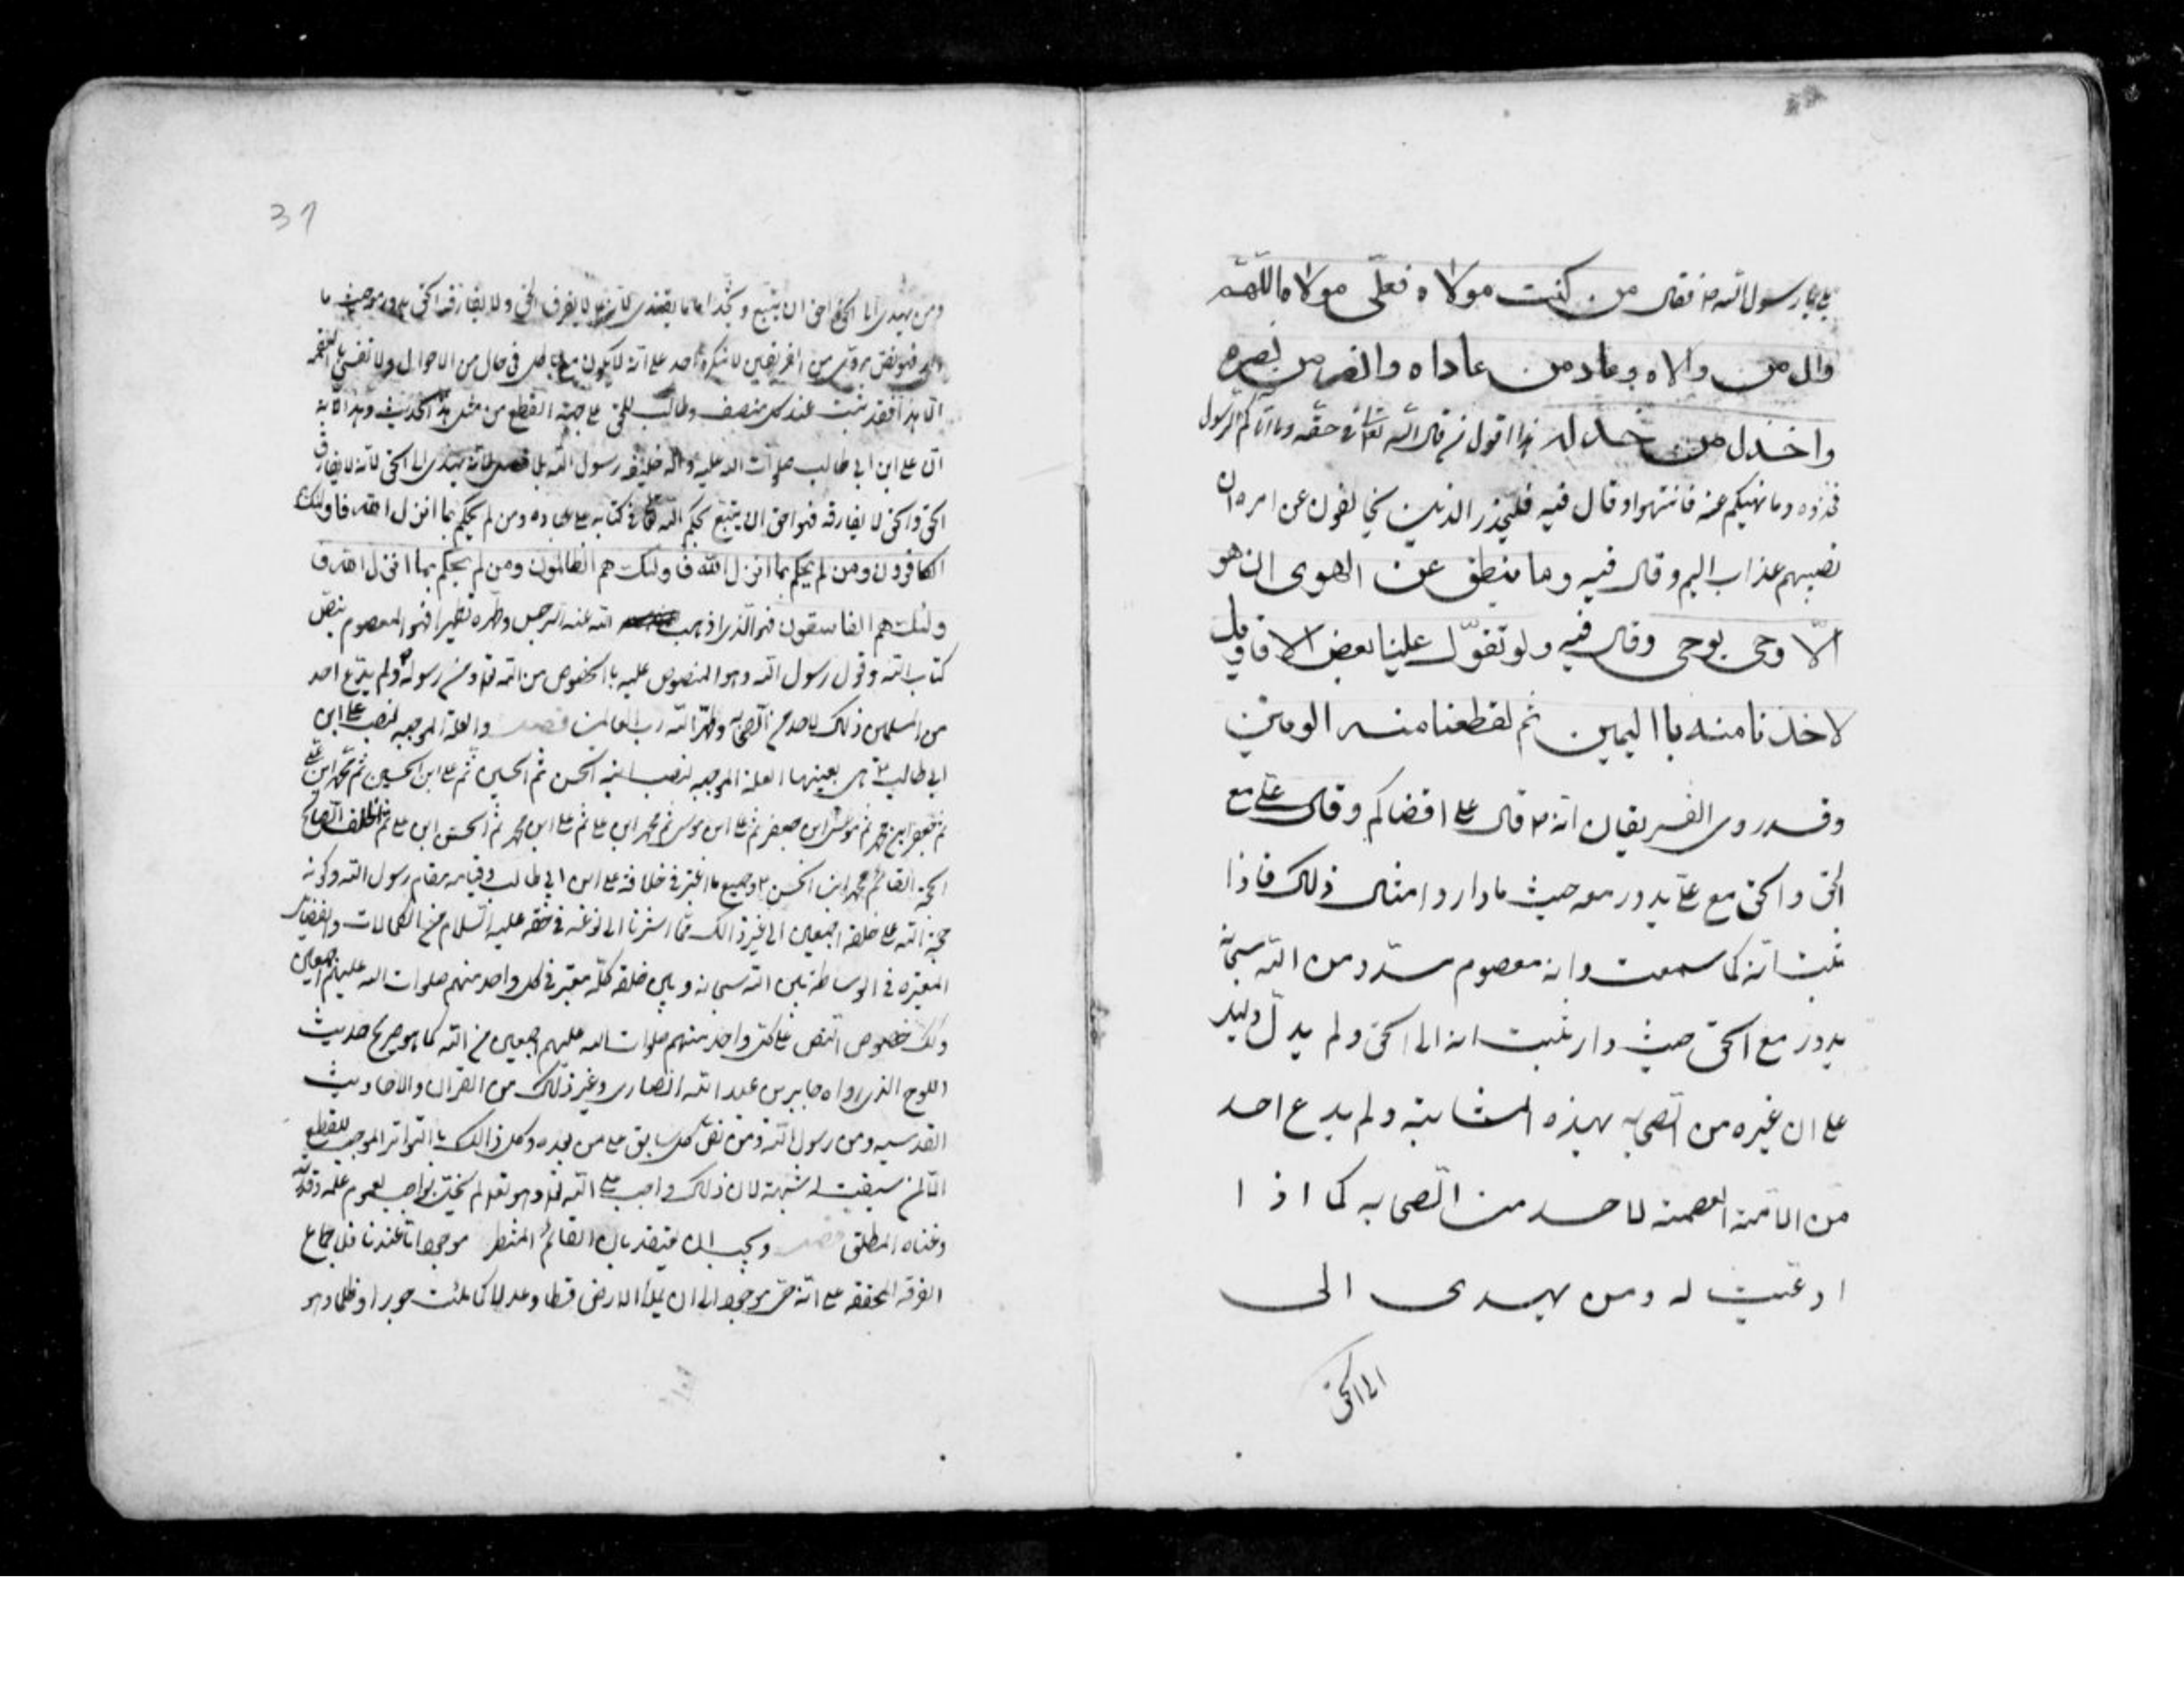 بلى يا رسول الله ص فقال من كنت مولاه فعلى مولاه اللهم
وال من والاه وعاد من عاداه وانصر من نصره
واخذل من خذله هذا اقول فى قال الله تعالى فى حقه وما اتاكم الرسول
فخذوه وما نهيكم عنه فانتهوا وقال فيه فليحذر الذين يخالفون عن امره ان
تصيبهم عذاب اليم وقال فيه وما ينطق عن الهوى ان هو
الّا وحى يوحى وقال فيه ولو تقوّل علينا بعض الاقاويل
لاخذنا منه بااليمين ثم لقطعنا منه الوتين
وقد روى الفريقان انه ص قال على اقضاكم وقال على مع
الحق والحق مع على يدور معه حيث ما دار وامثال ذلك فاذا
ثبت انه كما سمعت وانه معصوم مسدد من الله سبحانه
يدور مع الحق حيث دار ثبت انه الى الحق ولم يدلّ دليل
على ان غيره من الصحابه بهذه المثابة ولم يدع احد
من الامة العصمة لاحد من الصحابه كما اذا
ادعيت له ومن يهدى الى
الى الحق
37
ومن يهدى الى الحق احق ان يتبع ويتخذ اماما يقتدى لانه لا يفارق الحق ولا يفارقه الحق يدور معه حيث ما
دار فهو بنص مروى من الفريقين لا ينكره احد على انه لا يكون مع باطل فى حال من الاحوال ولا نعنى بالعصمة
الا هذا فقد ثبت عند كل منصف وطالب للحق على جهة القطع من مثل هذا الحديث وهذه الاية
ان على ابن ابى طالب صلوات الله عليه واله خليفه رسول الله بلا فصل لانه يهدى الى الحق لانه لا يفارق
الحق والحق لا يفارقه فهو احق ان يتبع بحكم الله تعالى فى كتابه على عباده ومن لم يحكم بما انزل الله فاولئك
الكافرون ومن لم يحكم بما انزل الله فاولئك هم الظالمون ومن لم يحكم بما انزل الله فا
ولئك هم الفاسقون فهو الذى اذهب الله عنه الرجس وطهره تطهيرا فهو المعصوم بنص
كتاب الله وقول رسول الله وهو المنصوص عليه باالخصوص من الله تعالى ومن رسوله ص ولم يدع احد
من المسلمين ذلك لاحد من الصحابه والحمد لله رب العالمين فصل والعلة الموجبه لنصب على ابن
ابى طالب ع هى بعينها العلة الموجبه لنصب ابنه الحسن ثم الحسين ثم على ابن الحسين ثم محمد ابن على
ثم جعفر ابن محمد ثم موسى ابن جعفر ثم على ابن موسى ثم محمد ابن على ثم على ابن محمد ثم الحسن ابن على ثم الخلف الصالح
الحجة القائم محمد ابن الحسن ع وجميع ما اعتبر فى خلافة على ابن ابى طالب وقيامه مقام رسول الله وكونه
حجة الله على خلقه اجمعين الى غير ذالك مما اشرنا الى نوعه فى حقه عليه السلام من الكمالات والفضايل
المعتبره فى الوساطه بين الله سبحانه وبين خلقه كله معتبر فى كل واحد منهم صلوات الله عليهم اجمعين
وكك خصوص النص على كل واحد منهم صلوات الله عليهم اجمعين من الله كما هو صريح حديث
اللوح الذى رواه جابر بن عبد الله انصارى وغير ذلك من القران والاحاديث
القدسيه ومن رسول الله ومن نص كل سابق على من بعده وكل ذالك باالتواتر الموجب للقطع
الا لمن سبقت له شبهة لان ذلك واجب على الله تعالى وهو تعالى لم يخل بواجب لعموم علمه وقدرته
وغناه المطلق فصل ويجب ان يعتقد بان القائم المنتظر موجود اما عندنا فلاجماع
الفرقه المحقه على انه حى موجود الى ان يملأ الارض قسطا وعدلا كما ملئت جورا وظلما وهو